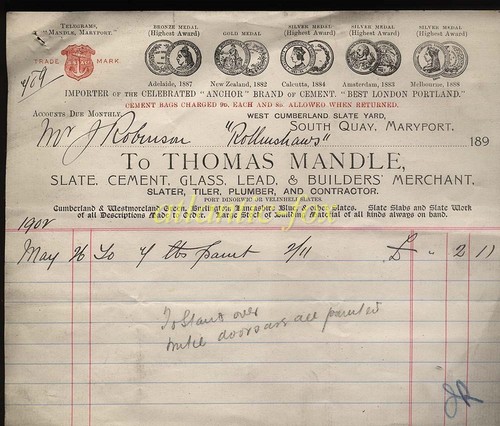 TELEGRAMS,
"MANDLE, MARYPORT."
TRADE MARK
BRONZE MEDAL
(Highest Award)
GOLD MEDAL
SILVER MEDAL
(Highest Award)
SILVER MEDAL
(Highest Award)
SILVER MEDAL
(Highest Award)
Adelaide, 1887
New Zealand, 1882
Calcutta, 1884
Amsterdam, 1883
Melbourne, 1888
IMPORTER OF THE CELEBRATED "ANCHOR" BRAND OF CEMENT. "BEST LONDON PORTLAND."
CEMENT BAGS CHARGED 9D. EACH AND 8D. ALLOWED WHEN RETURNED.
Accounts Due Monthly.
WEST CUMBERLAND SLATE YARD,
SOUTH QUAY, MARYPORT.
Mr J Robinson "Rothershaws" 189
To THOMAS MANDLE,
SLATE, CEMENT, GLASS, LEAD, & BUILDERS' MERCHANT,
SLATER, TILER, PLUMBER, AND CONTRACTOR.
PORT DINORWIC OR VELINHELI SLATES.
Cumberland & Westmoreland Green, Buttington, Lancashire Blue, & other Slates. Slate Slabs and Slate Work
of all Descriptions Made to Order. Large Stock of Building Material of all kinds always on hand.
atlantic fox
1902
May 26 To 7 lbs paint 2/11 £ " 2 11
To Stand over
until doors are all painted